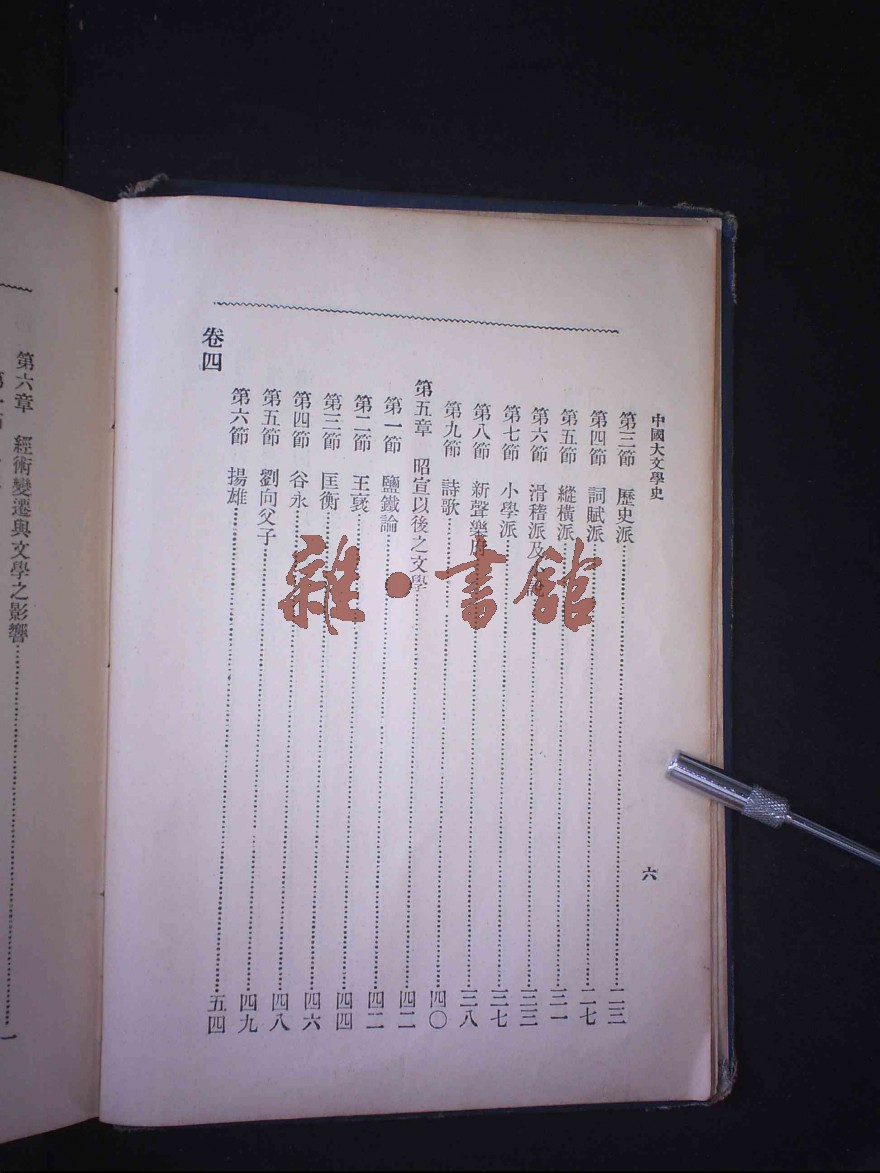 中國大文學史
六
第三節 歷史派 二三
第四節 詞賦派 二七
第五節 縱橫派 三一
第六節 滑稽派及小說 三三
第七節 小學派 三七
第八節 新聲樂府 三八
第九節 詩歌 四〇
第五章 昭宣以後之文學 四二
第一節 鹽鐵論 四二
第二節 王褒 四四
第三節 匡衡 四六
第四節 谷永 四八
第五節 劉向父子 四九
第六節 揚雄 五四
卷四
第六章 經術變遷與文學之影響 一
雜·書館